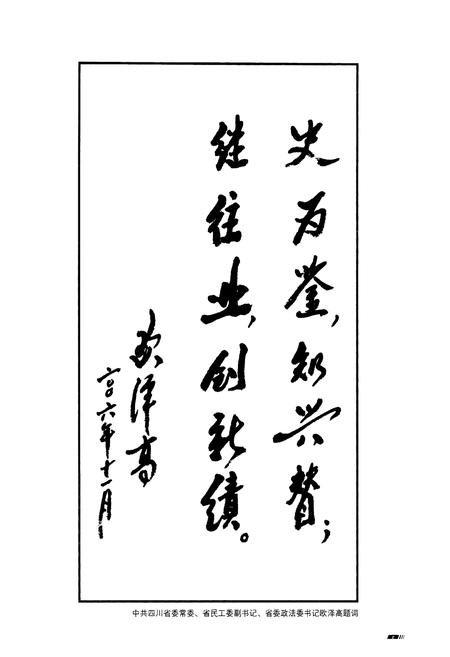 史为鉴,知兴替;
继往业,创新绩。
欧泽高
二〇〇六年十一月
中共四川省委常委、省民工委副书记、省委政法委书记欧泽高题词